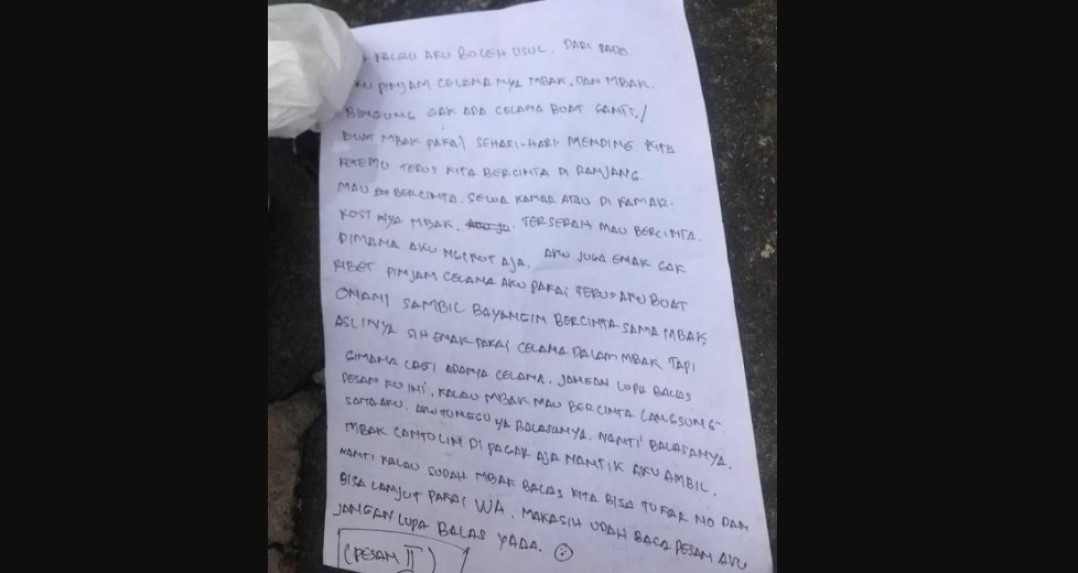 KALAU AKU BOLEH USUL. DARI PADA
AKU PINJAM CELANA NYA MBAK. DAN MBAK.
BINGUNG GAK ADA CELANA BUAT GANTI/
BUAT MBAK PAKAI SEHARI-HARI. MENDING KITA
KETEMU TERUS KITA BERCINTA DI RANJANG.
MAU BERCINTA. SEWA KAMAR ATAU DI KAMAR.
KOST NYA MBAK. TERSERAH MAU BERCINTA.
DIMANA AKU NGIKUT AJA. AKU JUGA ENAK GAK
RIBET PINJAM CELANA AKU PAKAI TERUS AKU BUAT
ONANI SAMBIL BAYANGIN BERCINTA SAMA MBAK
ASLINYA SIH ENAK PAKAI CELANA DALAM MBAK TAPI
GIMANA LAGI ADANYA CELANA. JANGAN LUPA BALAS
PESAN KU INI. KALAU MBAK MAU BERCINTA LANGSUNG
SAMA AKU. AKU TUNGGU YA BALASANYA. NANTI BALASANYA.
MBAK CANTOLIN DI PAGAR AJA NANTIK AKU AMBIL.
NANTI KALAU SUDAH MBAK BALAS KITA BISA TUKAR NO DAN
BISA LANJUT PAKAI WA. MAKASIH UDAH BACA PESAN AKU
JANGAN LUPA BALAS YADA.
(PESAN II)